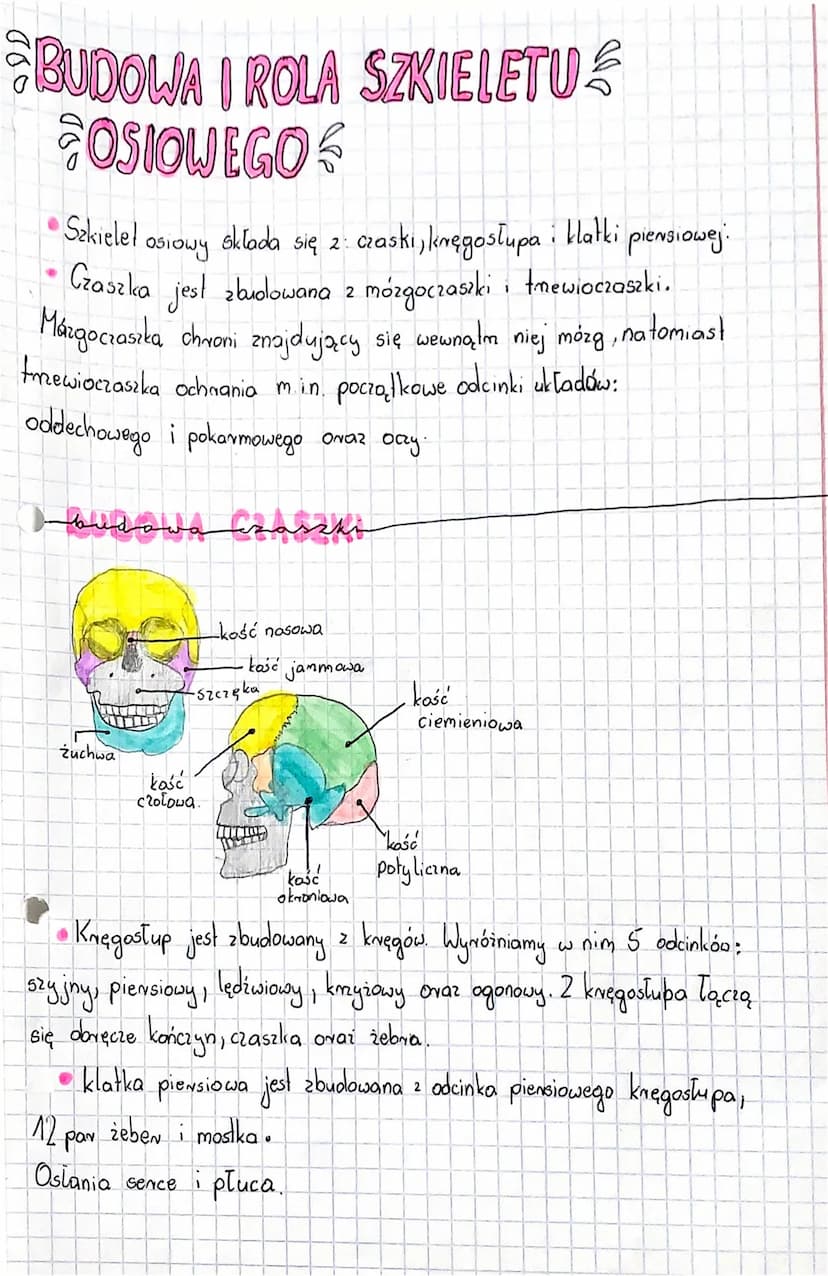 BUDOWA I ROLA SZKIELETU
OSIOWEGO
• Szkielet osiowy składa się z: czaski, kręgosłupa i klatki piersiowej.
• Czaszka jest zbudowana z mózgoczaszki i trzewioczaszki.
Mózgoczaszka chroni znajdujący się wewnątrz niej mózg, natomiast
trzewioczaszka ochrania m.in. początkowe odcinki układów:
oddechowego i pokarmowego oraz oczy.
BUDOWA CZASZKI
kość nosowa
kość jarzmowa
szczęka
żuchwa
kość
ciemieniowa
kość
czołowa.
kość
potyliczna
kość
skroniowa
• Kręgosłup jest zbudowany z kręgów. Wyróżniamy w nim 5 odcinków:
szyjny, piersiowy, lędźwiowy, krzyżowy oraz ogonowy. Z kręgosłupa łączą
się obręcze kończyn, czaszka oraz żebra.
• klatka piersiowa jest zbudowana z odcinka piersiowego kręgosłupa,
12 par żeber i mostka.
Osłania serce i płuca.